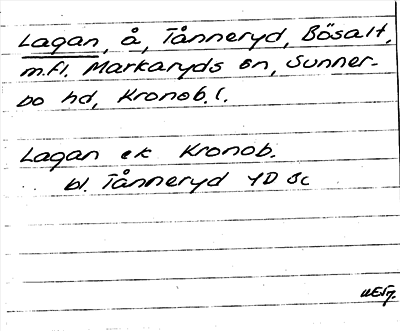 Lagan, å, Tånneryd, Bösalt,
m.fl. Markaryds sn, Sunner-
bo hd, Kronob. l.
Lagan ek Kronob.
bl. Tånneryd 4D Sc